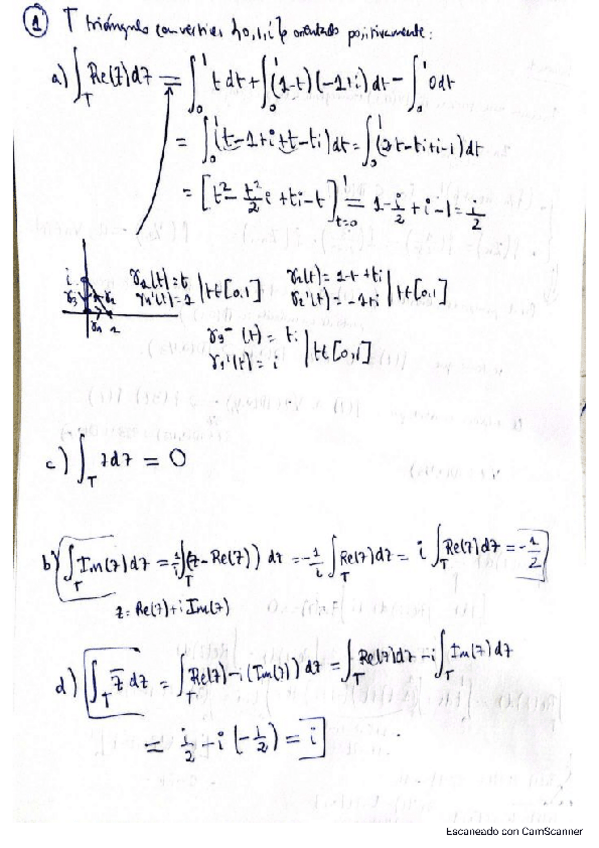 ① T triángulo con vértices {0,1,i} orientado positivamente:
a) ∫_T Re(z)dz = ∫_0^1 t dt + ∫_0^1 (1-t)(-1+i)dt - ∫_0^1 0dt
= ∫_0^1 (t-1+i+t-ti)dt = ∫_0^1 (2t-ti+i-1)dt
= [t² - t²/2 i + ti - t]_{t=0}^1 = 1 - i/2 + i - 1 = i/2
i γ3 γ2 γ1 1
γ1(t)=t γ1'(t)=1 | t∈[0,1] γ2(t)=1-t+ti γ2'(t)=-1+i | t∈[0,1]
γ3⁻(t)=ti γ3'(t)=i | t∈[0,1]
c) ∫_T zdz = 0
b) ∫_T Im(z)dz = 1/i ∫_T (z-Re(z)) dz = -1/i ∫_T Re(z)dz = i ∫_T Re(z)dz = -1/2
z=Re(z)+i Im(z)
d) ∫_T z̄ dz = ∫_T Re(z)-i(Im(z)) dz = ∫_T Re(z)dz - i ∫_T Im(z)dz
= i/2 - i (-1/2) = i
Escaneado con CamScanner